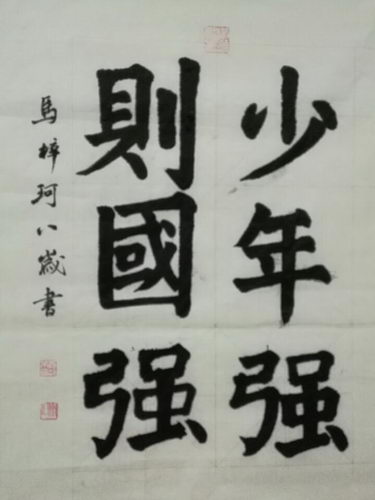 少年强
則國强
馬梓珂八歲書